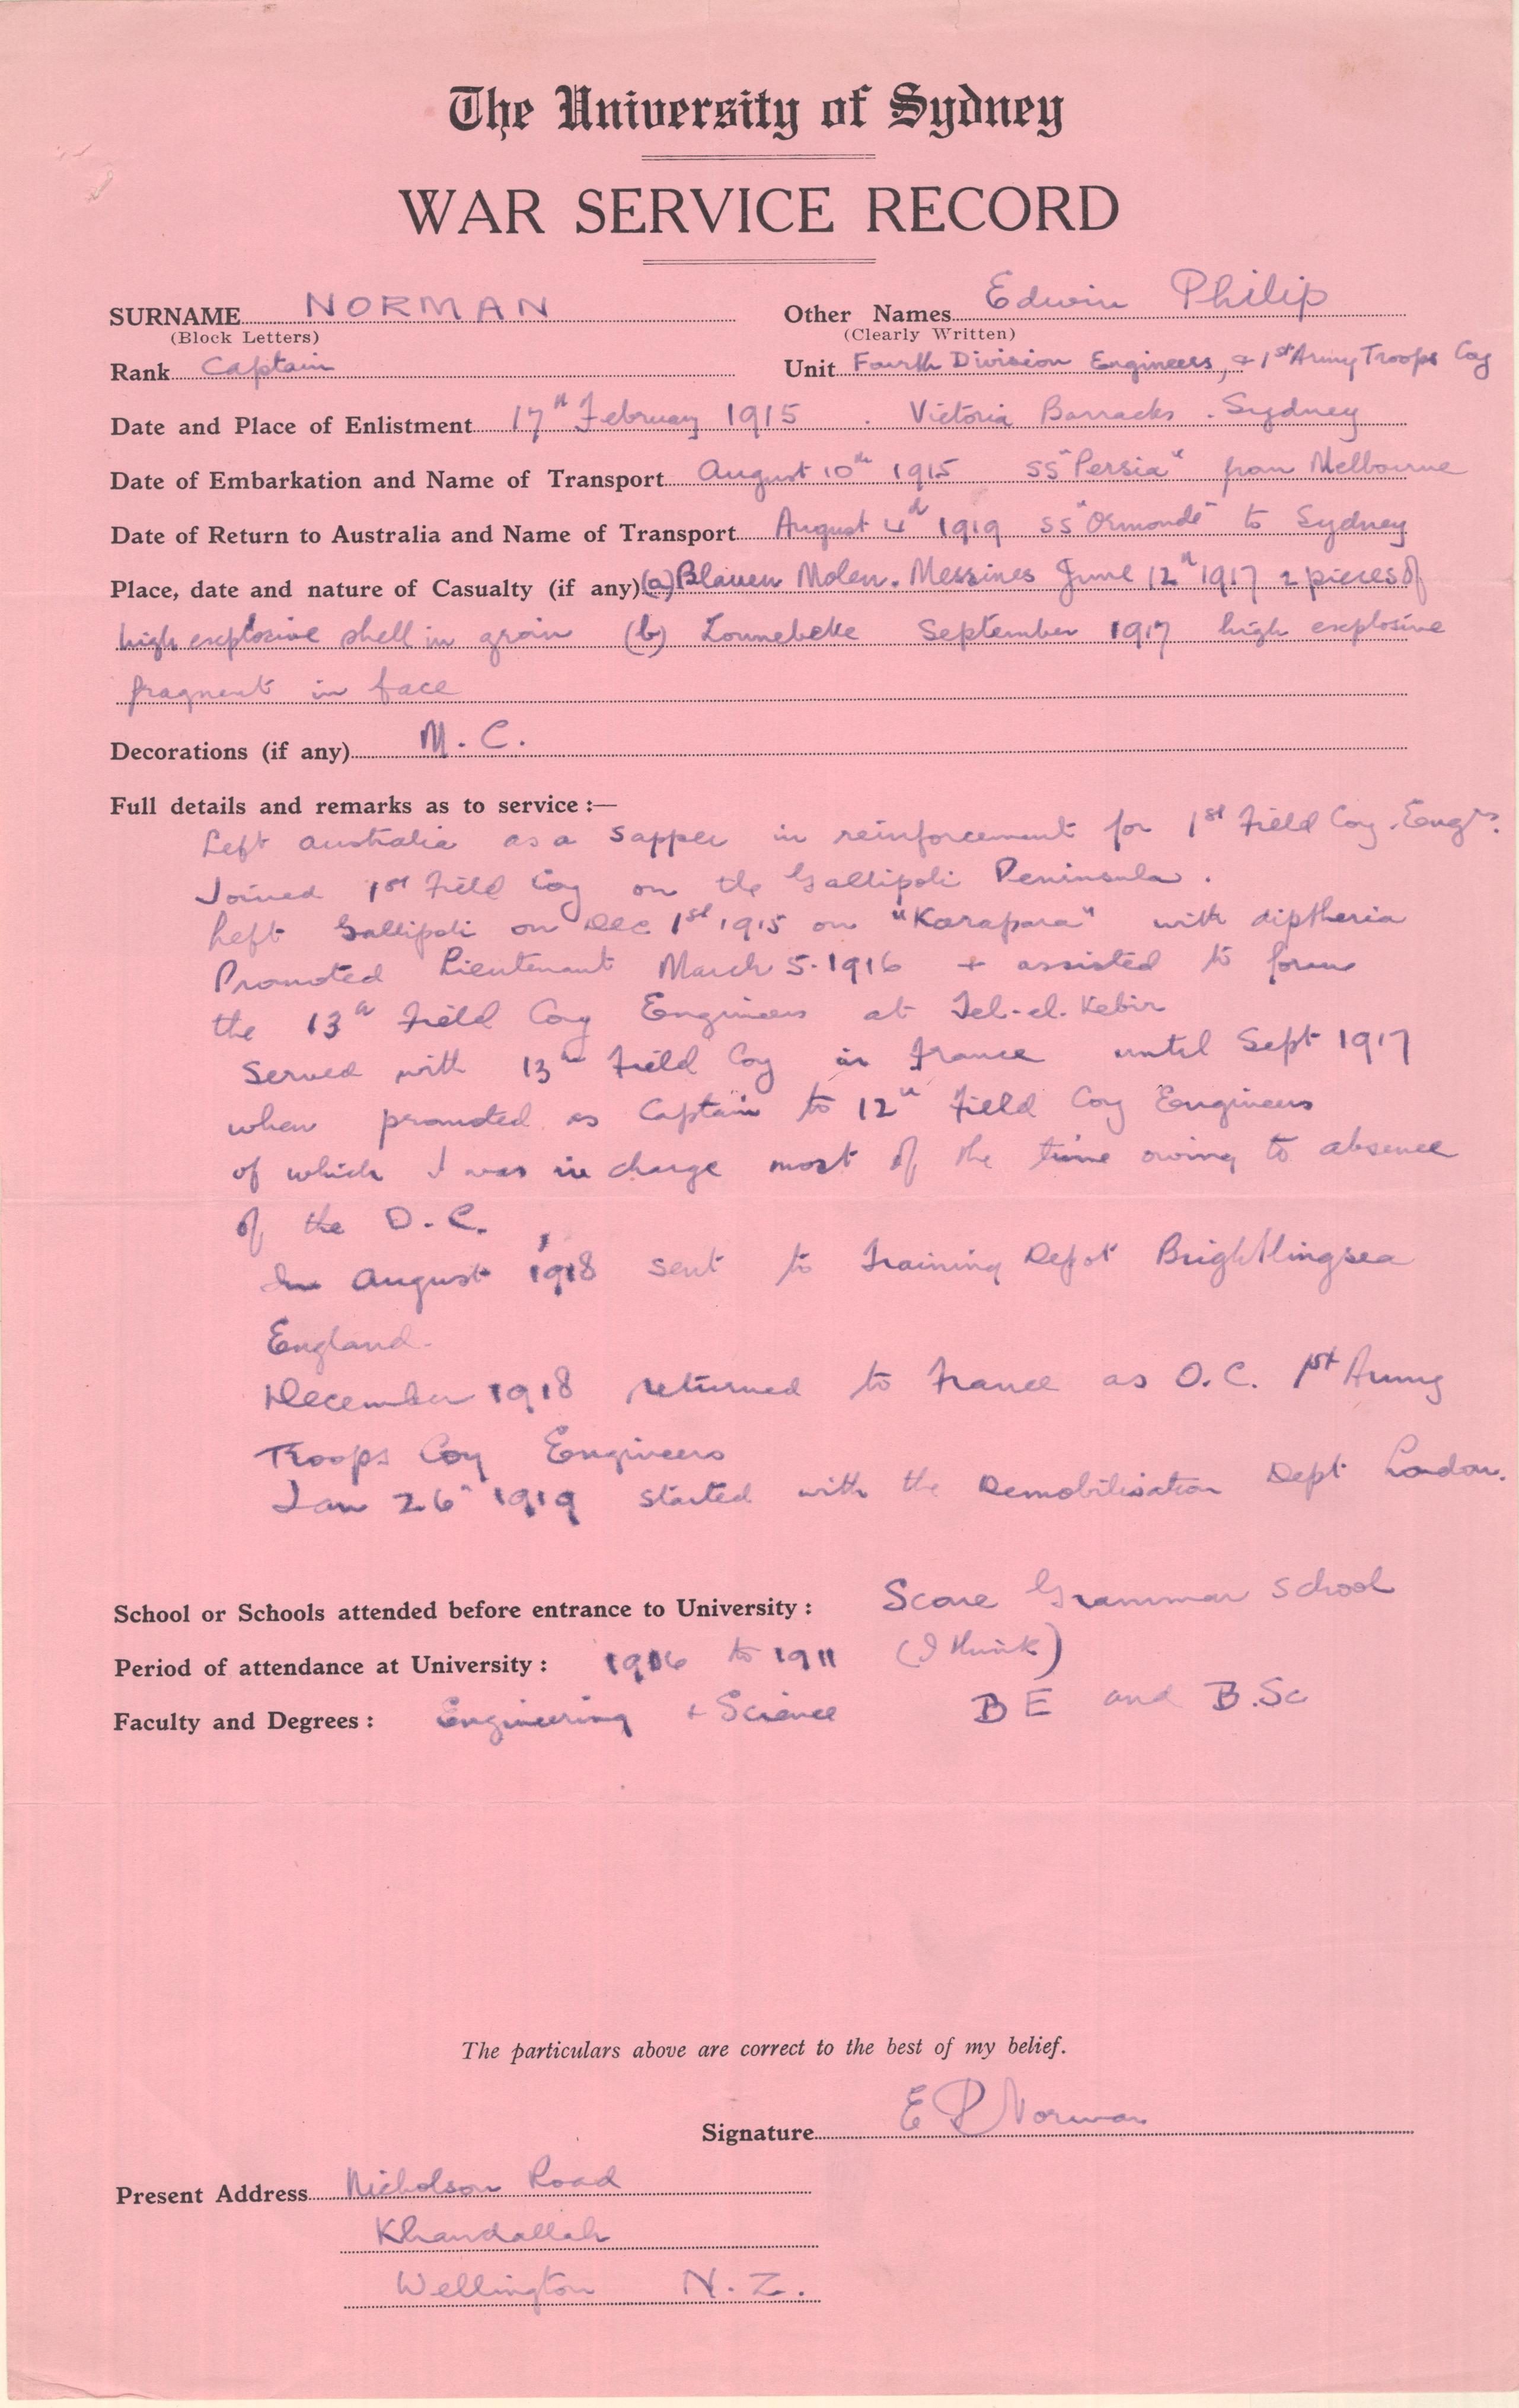 The University of Sydney
WAR SERVICE RECORD
SURNAME NORMAN Other Names Edwin Philip
(Block Letters) (Clearly Written)
Rank Captain Unit Fourth Division Engineers, + 1st Army Troops Coy
Date and Place of Enlistment 17th February 1915 . Victoria Barracks . Sydney
Date of Embarkation and Name of Transport August 10th 1915 SS "Persia" from Melbourne
Date of Return to Australia and Name of Transport August 4th 1919 SS "Ormonde" to Sydney
Place, date and nature of Casualty (if any) (a) Blauen Molen. Messines June 12th 1917 2 pieces of
high explosive shell in groin (b) Zonnebeke September 1917 high explosive
fragment in face
Decorations (if any) M.C.
Full details and remarks as to service :—
Left Australia as a Sapper in reinforcement for 1st Field Coy. Engrs.
Joined 1st Field Coy on the Gallipoli Peninsula .
Left Gallipoli on Dec 1st 1915 on "Karapara" with diptheria
Promoted Lieutenant March 5. 1916 + assisted to form
the 13th Field Coy Engineers at Tel-el-Kebir
Served with 13th Field Coy in France until Sept 1917
when promoted as Captain to 12th Field Coy Engineers
of which I was in charge most of the time owing to absence
of the O.C.
In August 1918 sent to Training Depot Brightlingsea
England.
December 1918 returned to France as O.C. 1st Army
Troops Coy Engineers
Jan 26 1919 started with the Demobilisation Dept London.
School or Schools attended before entrance to University : Scone Grammar School
Period of attendance at University : 1906 to 1911 (I think)
Faculty and Degrees : Engineering + Science BE and B.Sc
The particulars above are correct to the best of my belief.
Signature E P Norman
Present Address Nicholson Road
Khandallah
Wellington N.Z.